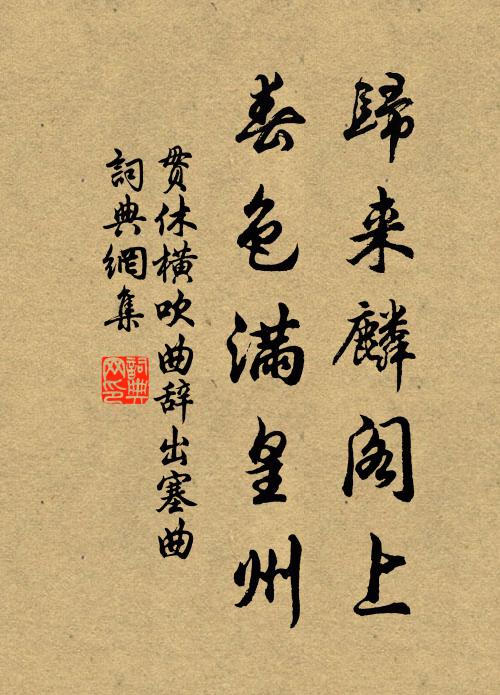 歸来麟阁上
春色滿皇州
贯休橫吹曲辞出塞曲
詞典網集
詞典网印